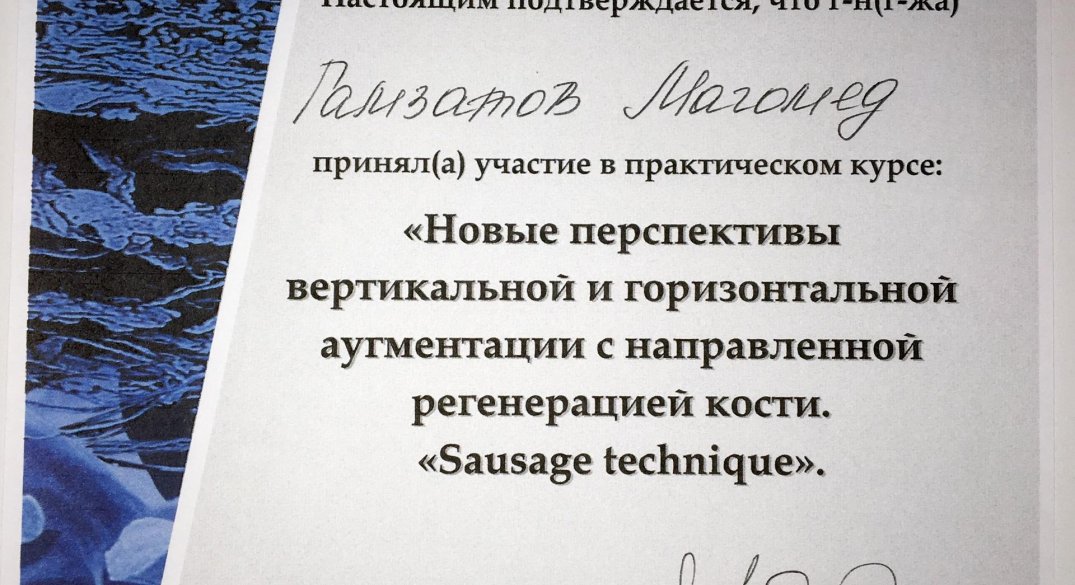 Настоящим подтверждается, что г-н(г-жа)
Гамзатов Магомед
принял(а) участие в практическом курсе:
«Новые перспективы
вертикальной и горизонтальной
аугментации с направленной
регенерацией кости.
«Sausage technique».